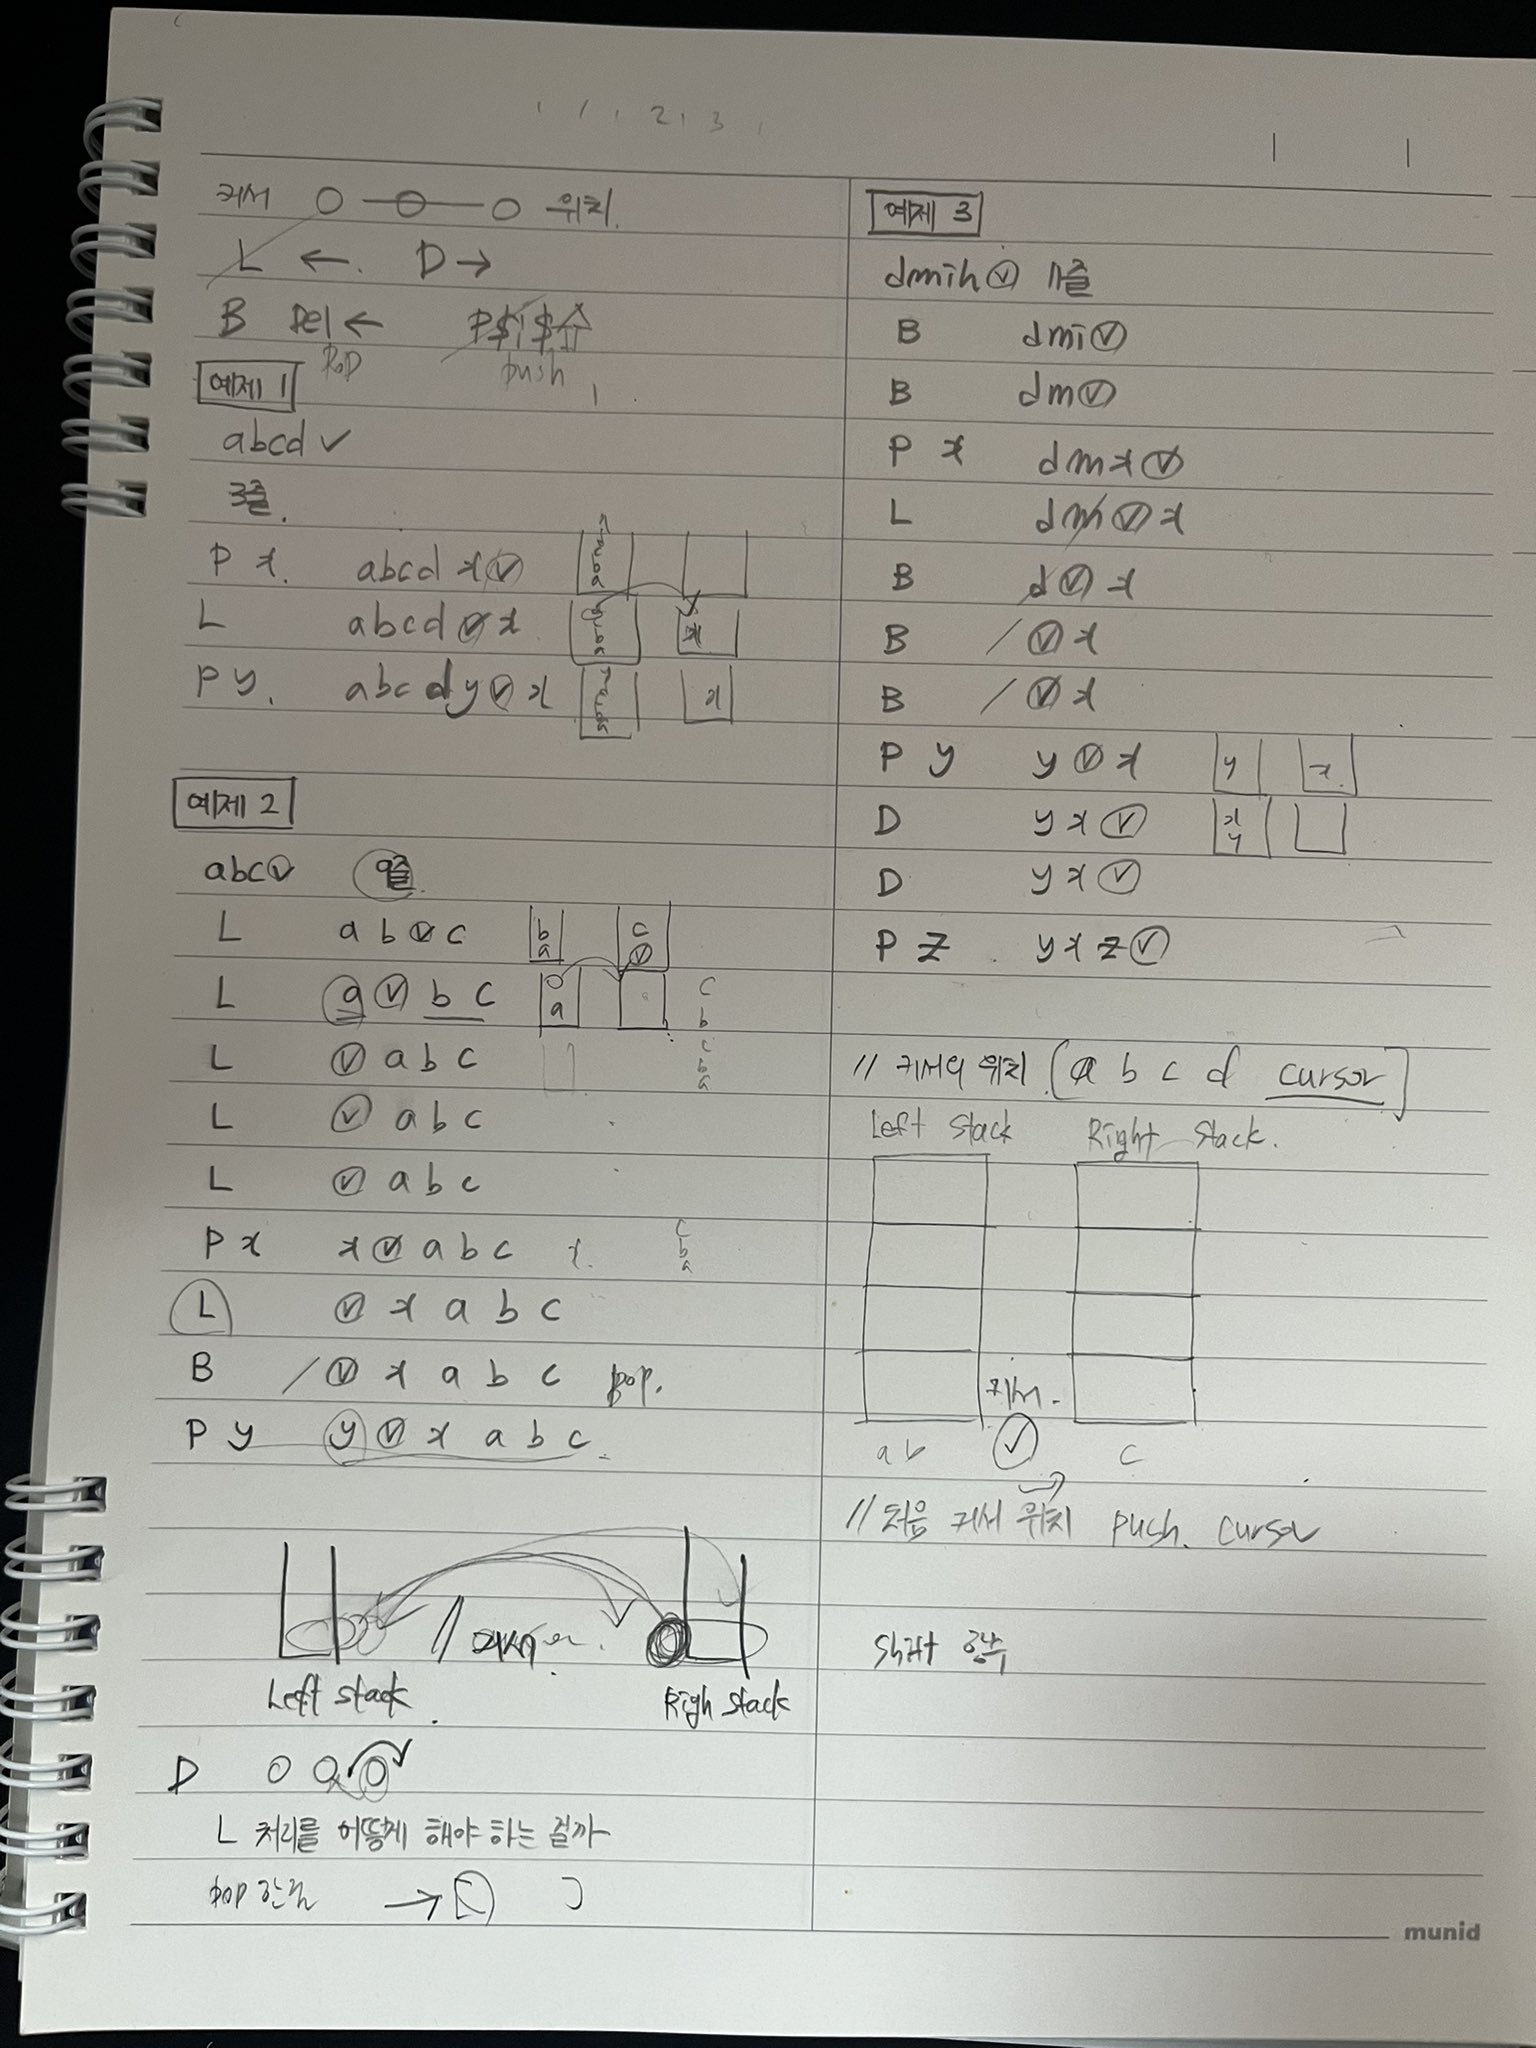 1 2 1 3 1
커서 위치.
L ← . D →
B Del ← P $ i $ ⇧
POP push
예제 1
abcd ✓
3줄.
P x. abcd x ✓
L abcd ✓ x x
P y. abcd y ✓ x x
예제 2
abc ✓ 9줄.
L a b ✓ c b a c ✓
L a ✓ b c a c b
L ✓ a b c c b a
L ✓ a b c
L ✓ a b c
P x x ✓ a b c x. c b a
L ✓ x a b c
B / ✓ x a b c pop.
P y y ✓ x a b c.
//
Left stack. Righ stack
D
L 처리를 어떻게 해야 하는 걸까
pop 한 →
예제 3
dmih ✓ 11줄
B dmi ✓
B dm ✓
P x dmx ✓
L dm ✓ x
B d ✓ x
B / ✓ x
B / ✓ x
P y y ✓ x y x.
D y x ✓ x y
D y x ✓
P z y x z ✓
// 커서의 위치 [a b c d cursor]
Left stack Right stack.
커서.
a b ✓ c
// 처음 커서 위치 push. cursor
shift 함수
munid